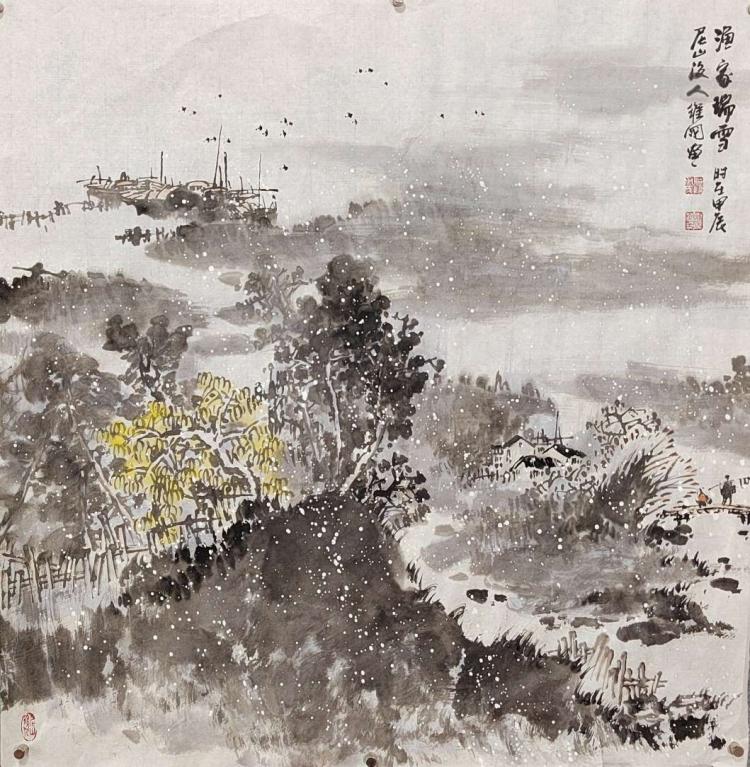 渔家瑞雪 时在甲辰
尼山后人维国画